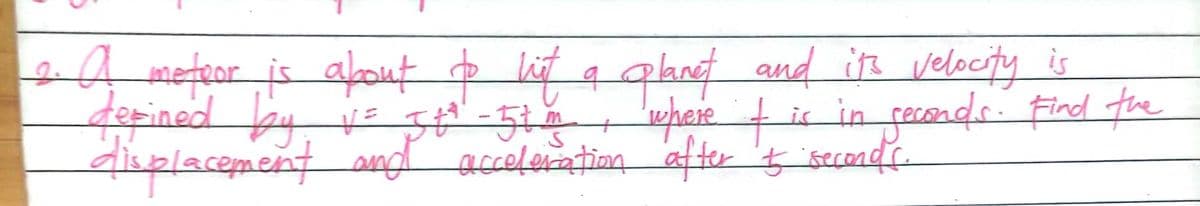 2. A meteor is about to hit a planet and its velocity is
defined by v= 5t⁴ -5t m/s , where t is in seconds. Find the
displacement and acceleration after 5 seconds.